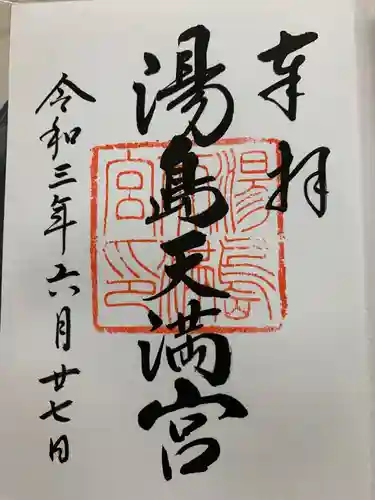 奉拝
湯島天満宮
令和三年六月廿七日